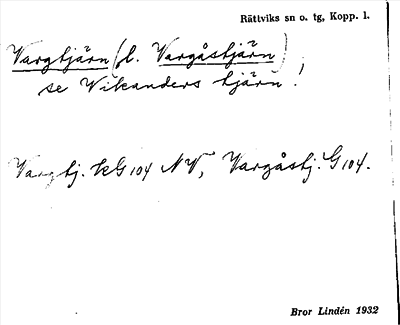 Rättviks sn o. tg, Kopp. l.
Vargtjärn (l. Vargåstjärn)
se Wikanders tjärn!
Vargtj. G 104 NV, Vargåstj. G 104.
Bror Lindén 1932